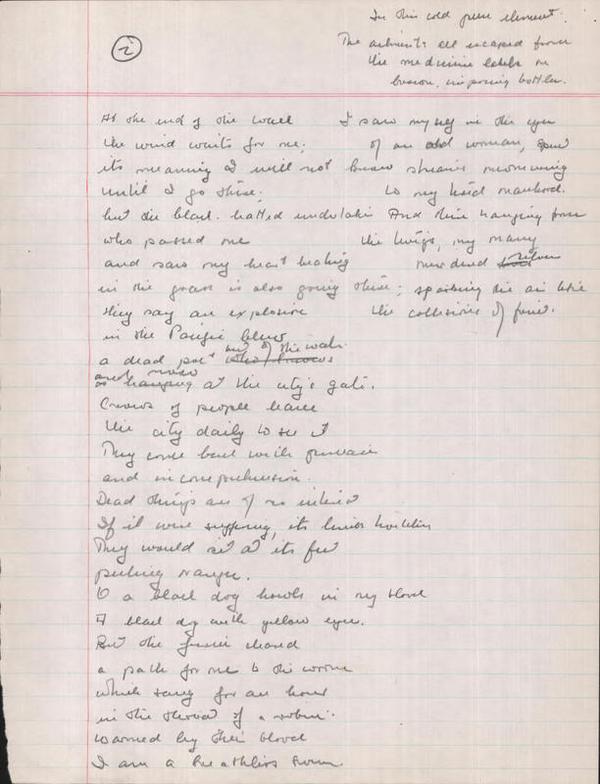 i
In this cold pure element.
The ailments all escaped from
the medicine labels on
brown, imposing bottles.
At the end of the world
the wind waits for me;
its meaning I will not know
until I go there;
but the black-hatted undertaker
who passed me
and saw my heart beating
in the grass is also going there;
they say an explosion
in the Pacific blew
a dead poet out of the water
and now
as hanging at the city's gate.
Crowds of people leave
the city daily to see it
They come back with
and incomprehension.
Dead things are of no interest
If it were suffering, its limbs twitching
They would sit at its feet
peeling oranges.
O a black dog howls in my blood
A black dog with yellow eyes.
But the cleared
a path for me to the worm
which sang for an hour
in the throat of a robin.
Warmed by their blood
I am a breathless
I saw myself in the eyes
of an old woman,
streams mourning
to my hard manhood.
And there hanging from
the twigs, my many
new dead silver
sparking the air like
the collisions of